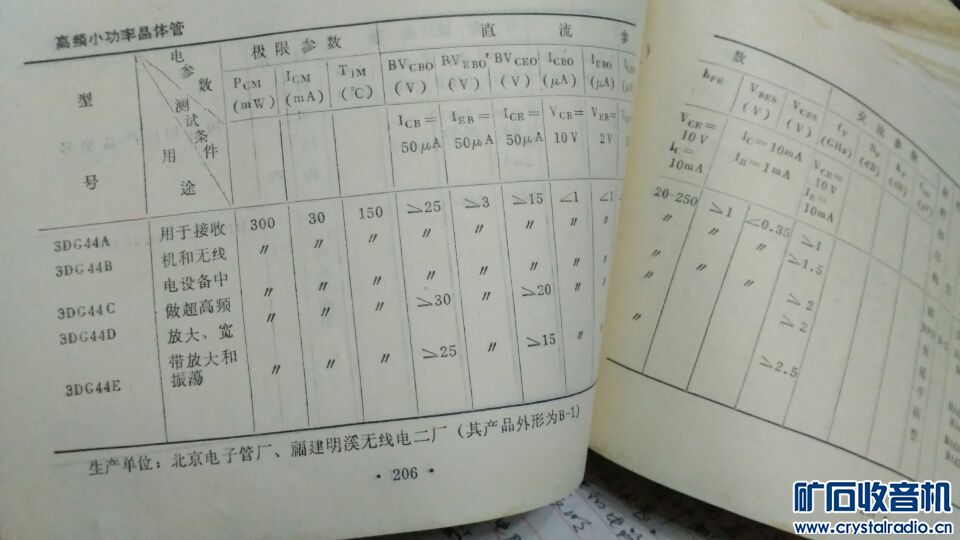 高频小功率晶体管
型号
电参数
测试条件
用途
极限参数
直流参
数
交流参数
PCM (mW)
ICM (mA)
TjM (℃)
BVCBO (V)
BVEBO (V)
BVCEO (V)
ICBO (μA)
IEBO (μA)
hFE
VBES (V)
VCES (V)
fT (GHz)
ICB= 50μA
IEB= 50μA
ICE= 50μA
VCB= 10V
VEB= 2V
VCE= 10V IC= 10mA
IC=10mA IB=1mA
VCE= 10V IE= 10mA
3DG44A 300 30 150 ≥25 ≥3 ≥15 <1 <1 20-250 ≥1 <0.35 ≥1
3DG44B 〃 〃 〃 〃 〃 〃 〃 〃 〃 〃 〃 ≥1.5
3DG44C 〃 〃 〃 ≥30 〃 ≥20 〃 〃 〃 〃 〃 ≥2
3DG44D 〃 〃 〃 〃 〃 〃 〃 〃 〃 〃 〃 ≥2
3DG44E 〃 〃 〃 ≥25 〃 ≥15 〃 〃 〃 〃 〃 ≥2.5
用于接收
机和无线
电设备中
做超高频
放大、宽
带放大和
振荡
生产单位：北京电子管厂、福建明溪无线电二厂（其产品外形为B-1）
·206·
矿石收音机
www.crystalradio.cn